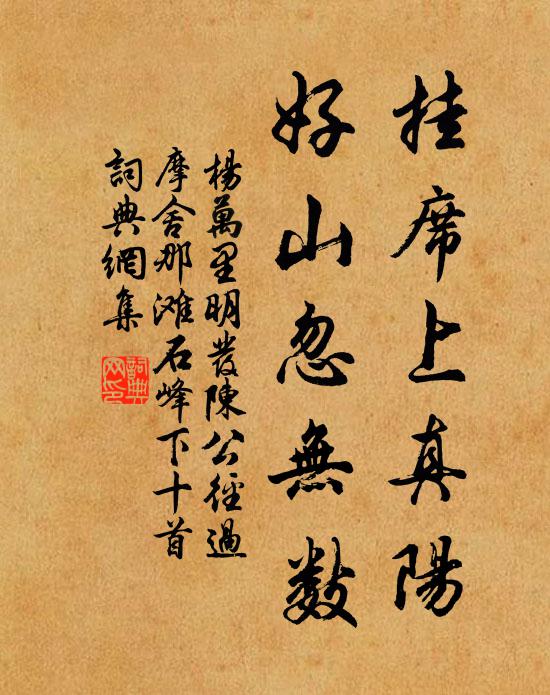 挂席上真陽
好山忽無数
楊萬里明發陳公徑過
摩舍那滩石峰下十首
詞典網集
詞典
网印